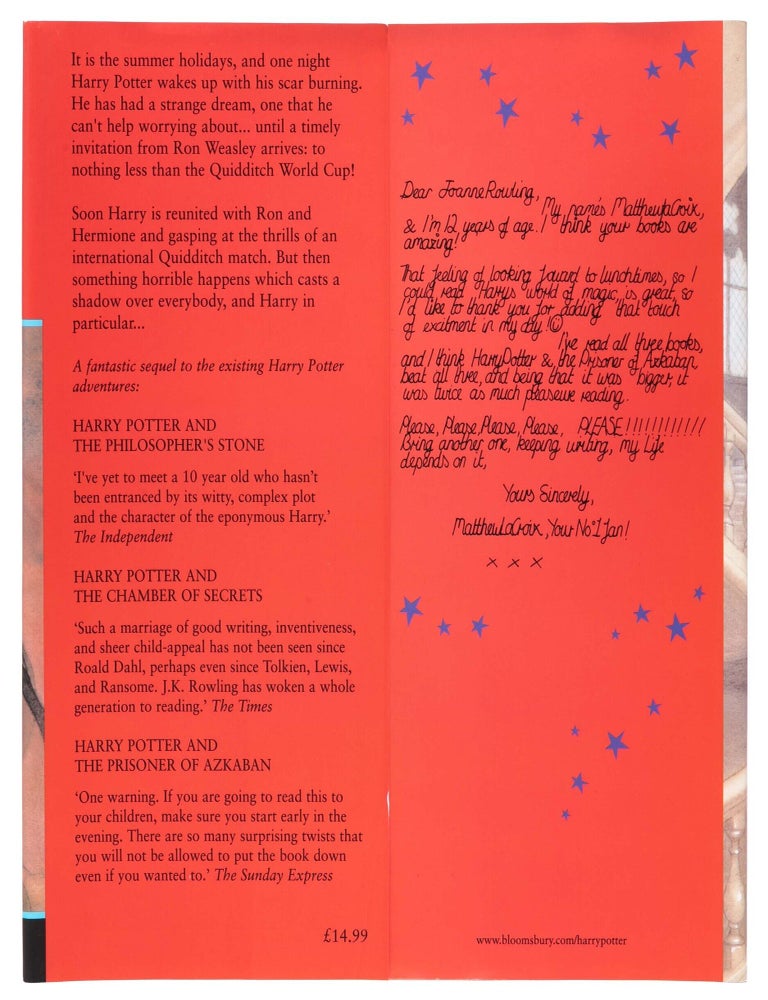 It is the summer holidays, and one night
Harry Potter wakes up with his scar burning.
He has had a strange dream, one that he
can't help worrying about... until a timely
invitation from Ron Weasley arrives: to
nothing less than the Quidditch World Cup!
Soon Harry is reunited with Ron and
Hermione and gasping at the thrills of an
international Quidditch match. But then
something horrible happens which casts a
shadow over everybody, and Harry in
particular...
A fantastic sequel to the existing Harry Potter
adventures:
HARRY POTTER AND
THE PHILOSOPHER'S STONE
‘I've yet to meet a 10 year old who hasn't
been entranced by its witty, complex plot
and the character of the eponymous Harry.’
The Independent
HARRY POTTER AND
THE CHAMBER OF SECRETS
‘Such a marriage of good writing, inventiveness,
and sheer child-appeal has not been seen since
Roald Dahl, perhaps even since Tolkien, Lewis,
and Ransome. J.K. Rowling has woken a whole
generation to reading.’ The Times
HARRY POTTER AND
THE PRISONER OF AZKABAN
‘One warning. If you are going to read this to
your children, make sure you start early in the
evening. There are so many surprising twists that
you will not be allowed to put the book down
even if you wanted to.’ The Sunday Express
£14.99
Dear Joanne Rowling,
My name's Matthew LaCroix,
& I'm 12 years of age. I think your books are
amazing!
That feeling of looking foward to lunchtimes, so I
could read Harrys world of magic, is great, so
I'd like to thank you for adding that touch
of excitment in my day!☺
I've read all three books,
and I think Harry Potter & the Prisoner of Azkaban,
beat all three, and being that it was bigger, it
was twice as much pleaseure reading.
Please, Please, Please, Please, PLEASE!!!!!!!!!!!!
Bring another one, keeping writing, my Life
depends on it,
Yours Sincerely,
Matthew LaCroix, Your No.1 fan!
x x x
www.bloomsbury.com/harrypotter